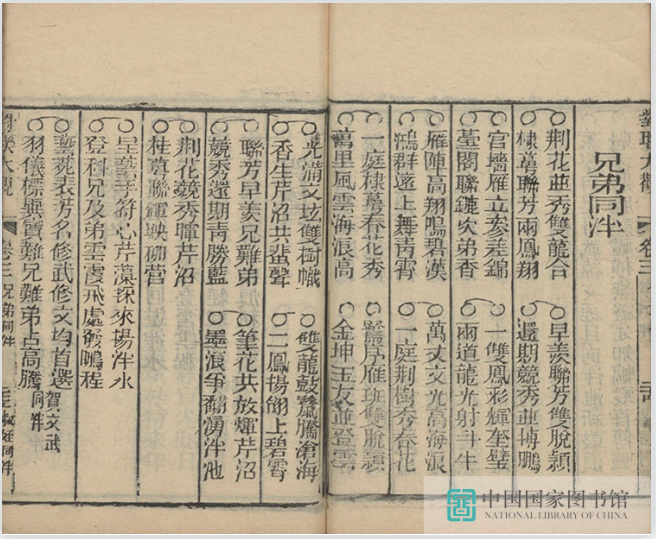 對聯大觀 卷三
兄弟同泮
荆花並秀雙龍合 早羨聯芳雙脫穎
棣萼聯芳兩鳳翔 還期競秀並搏鵬
宮牆雁立參差錦 一雙鳳彩輝奎璧
閣聯鑣次弟香 兩道龍光射斗牛
雁陣高翔鳴碧漢 萬丈文光高海浪
鴻群遠上舞靑霄 一庭荆樹秀春花
一庭棣萼春花秀 序雁班雙脫穎
萬里風雲海浪高 金坤玉友並登雲
光滿文垓雙樹幟 雙龍鼓鬣騰滄海
香生芹沼共蜚聲 二鳳揚翎上碧霄
聯芳早羨兄難弟 筆花共放煇芹沼
競秀還期靑勝藍 墨浪爭翻湧泮池
荆花競秀煇芹沼
桂萼聯輝映柳營
呈藝手符心芹藻採來揚泮水
登科兄及弟雲霞飛處鵬程
藝苑表芳名修武修文均首選 賀文武同泮
羽儀標異質難兄難弟占高騰
對聯大觀 卷三 兄弟同泮 叔姪同泮
中国国家图书馆
NATIONAL LIBRARY OF CHINA